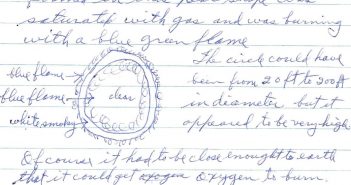 saturated with gas and was burning
with a blue green flame
The circle could have
blue flame → been from 20 ft to 200 ft
blue flame → clear in diameter but it
white smokey → appeared to be very high.
Of course it had to be close enought to earth
that it could get oxygen to burn.